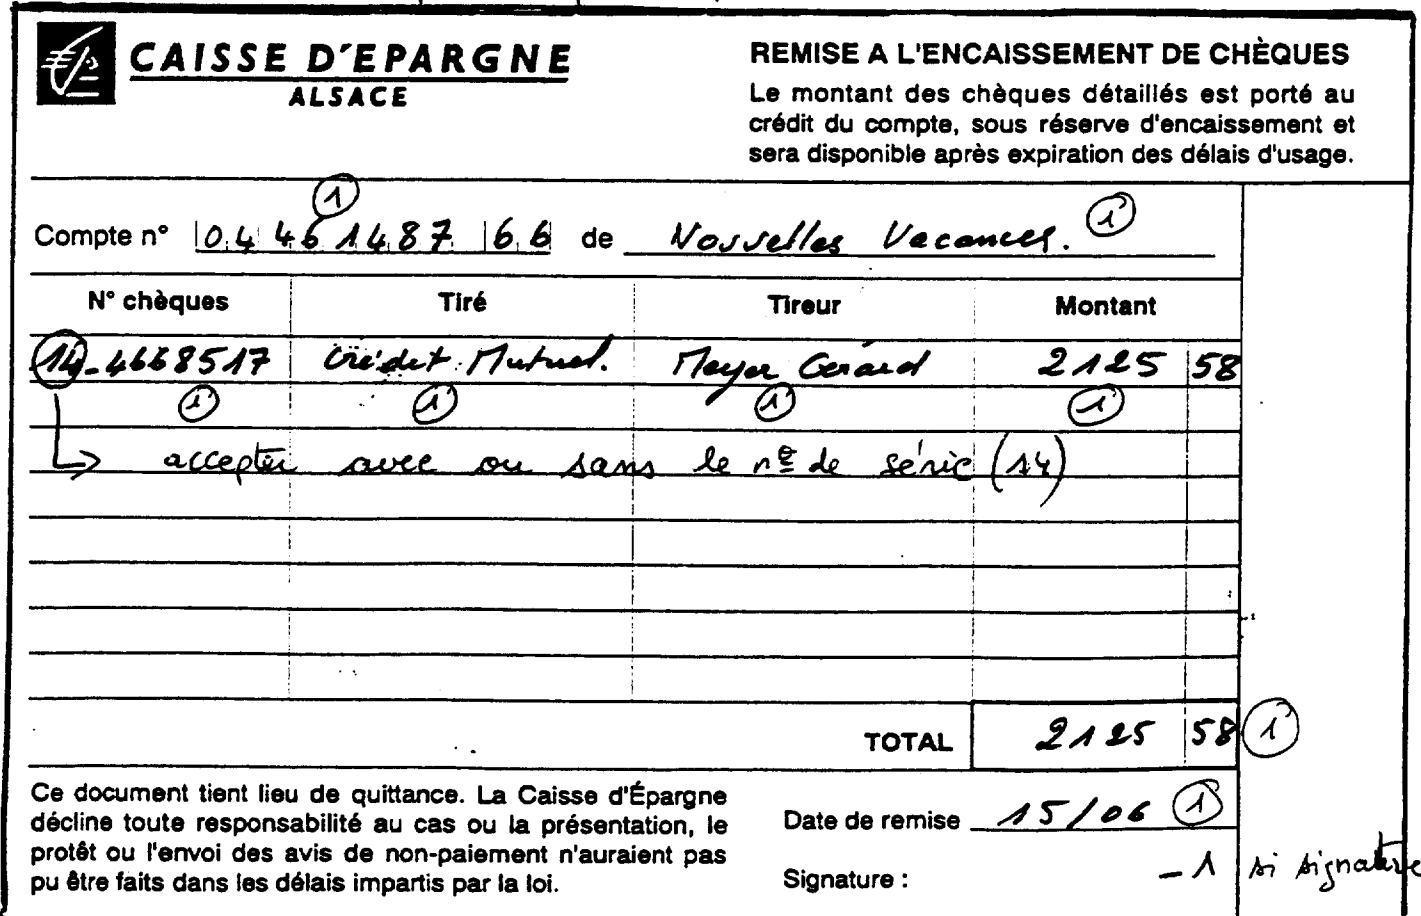 CAISSE D'EPARGNE
ALSACE
REMISE A L'ENCAISSEMENT DE CHÈQUES
Le montant des chèques détaillés est porté au
crédit du compte, sous réserve d'encaissement et
sera disponible après expiration des délais d'usage.
1
Compte n° 04461487 66 de Nouvelles Vacances. 1
N° chèques Tiré Tireur Montant
14-4668517 Crédit Mutuel. Meyer Gérard 2125 58
1 1 1 1
→ accepter avec ou sans le n° de série (14)
TOTAL 2125 58 1
Ce document tient lieu de quittance. La Caisse d'Épargne
décline toute responsabilité au cas ou la présentation, le
protêt ou l'envoi des avis de non-paiement n'auraient pas
pu être faits dans les délais impartis par la loi.
Date de remise 15/06 1
Signature : -1 si signature